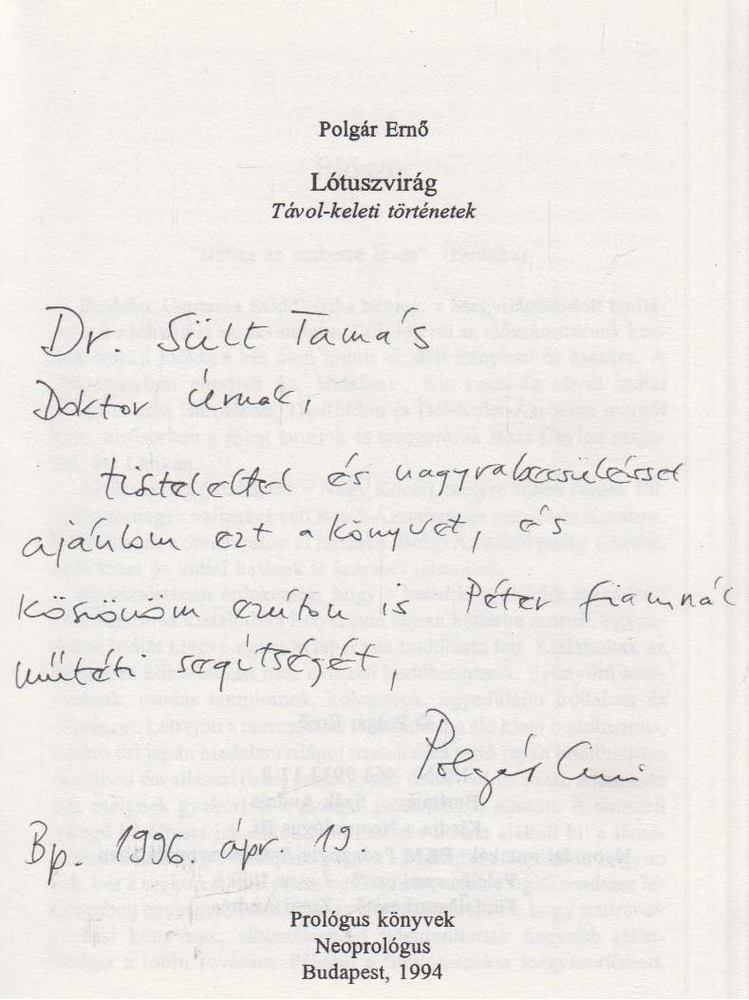 Polgár Ernő
Lótuszvirág
Távol-keleti történetek
Dr. Sült Tamás
Doktor Úrnak,
tisztelettel és nagyrabecsüléssel
ajánlom ezt a könyvet, és
köszönöm ezúton is Péter fiamnak
műtéti segítségét
Polgár Ernő
Bp. 1996. ápr. 19.
Prológus könyvek
Neoprológus
Budapest, 1994